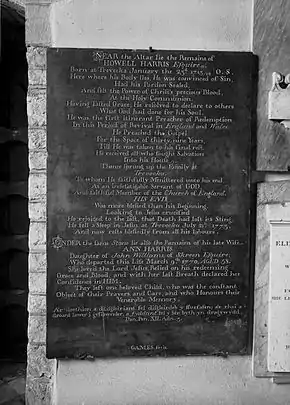 NEAR the Altar lie the Remains of
HOWELL HARRIS Esquire,
Born at Trevecka January the 23d 1713/14 O.S.
Here where his Body lies, He was convinced of Sin,
Had his Pardon Sealed,
And felt the Power of Christ's precious Blood,
At the Holy Communion.
Having Tasted Grace, He resolved to declare to others
What GOD had done for his Soul.
He was the first itinerant Preacher of Redemption
In this Period of Revival in England and Wales.
He Preached the Gospel
For the Space of thirty-nine Years,
Till He was taken to his final rest.
He received all who sought Salvation
Into his House.
Thence sprung up the Family at
Trevecka,
To whom He faithfully Ministered unto his end,
As an indefatigable Servant of GOD,
And faithful Member of the Church of England.
HIS END
Was more blessed than his Beginning.
Looking to Jesus crucified
He rejoiced to the last, that Death had lost its Sting.
He fell a Sleep in Jesus at Trevecka July 21st 1773.
And now rests blessedly from all his Labours.
UNDER the same Stone lie also the Remains of his late Wife,
ANN HARRIS
Daughter of John Williams of Skreen Esquire
Who departed this Life March 9th 1770, AGED 58.
She loved the Lord Jesus, Relied on his redeeming
Grace and Blood, and with her last Breath declared her
Confidence in HIM.
They left one beloved Child, who was the constant
Object of their Prayers and Care, and who Honours their
Venerable Memory.
GAMES fecit.